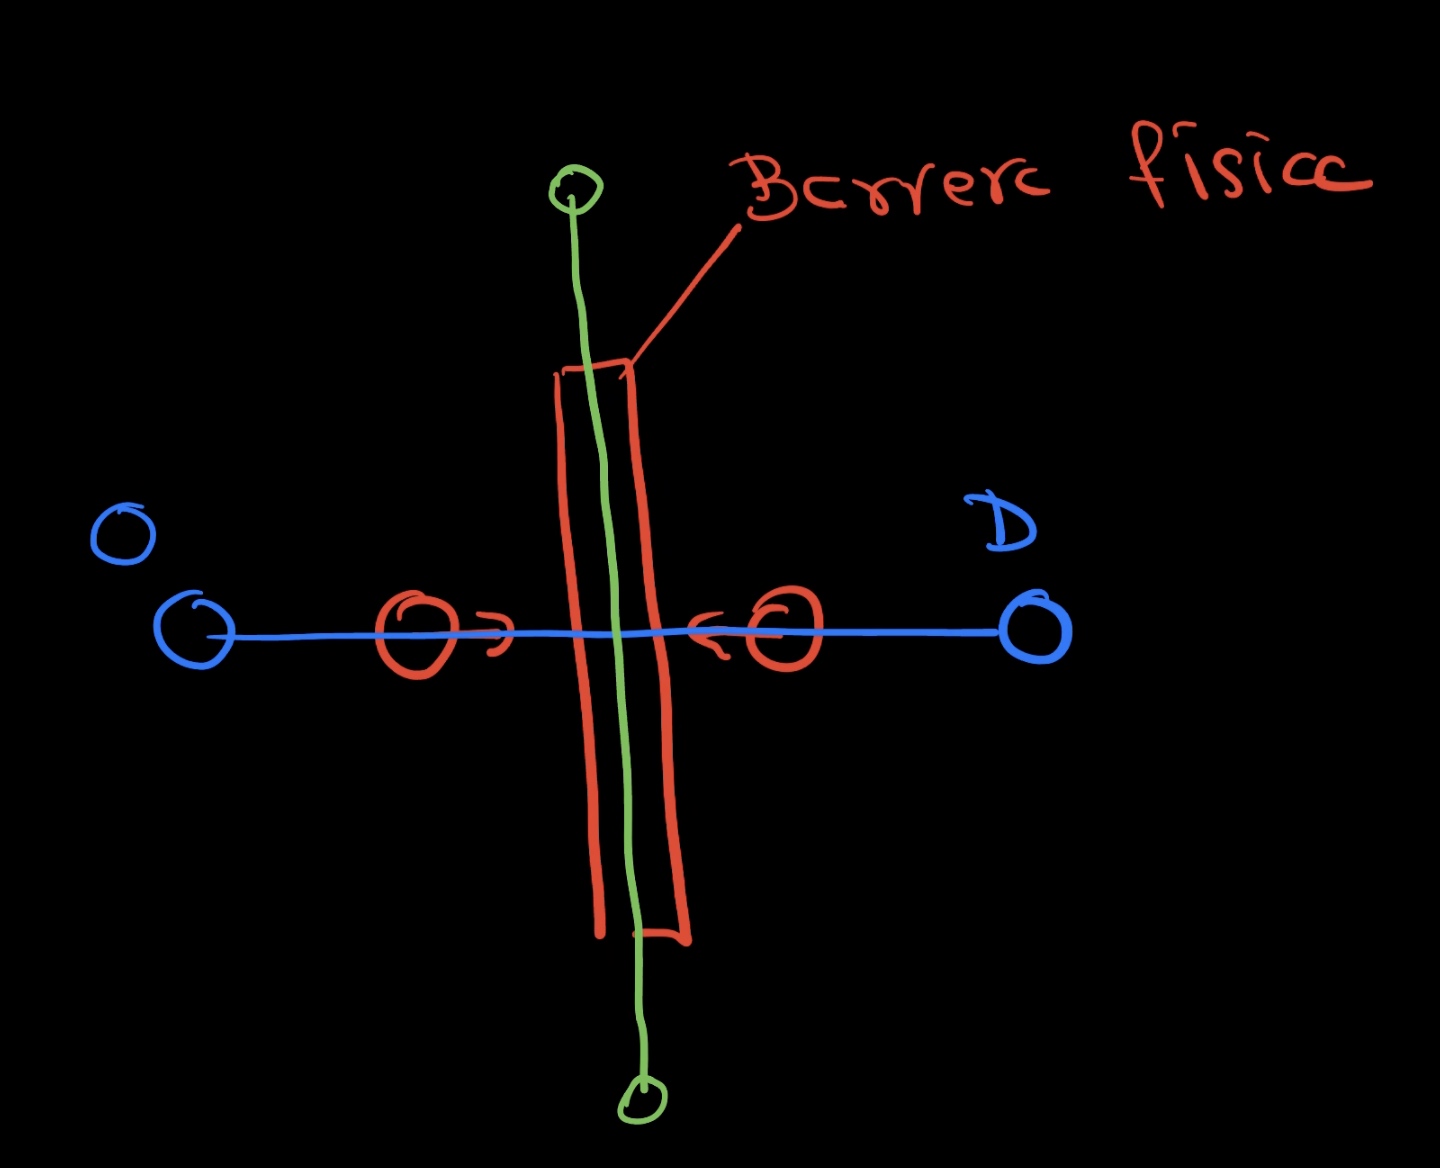 Barrera física
O
D